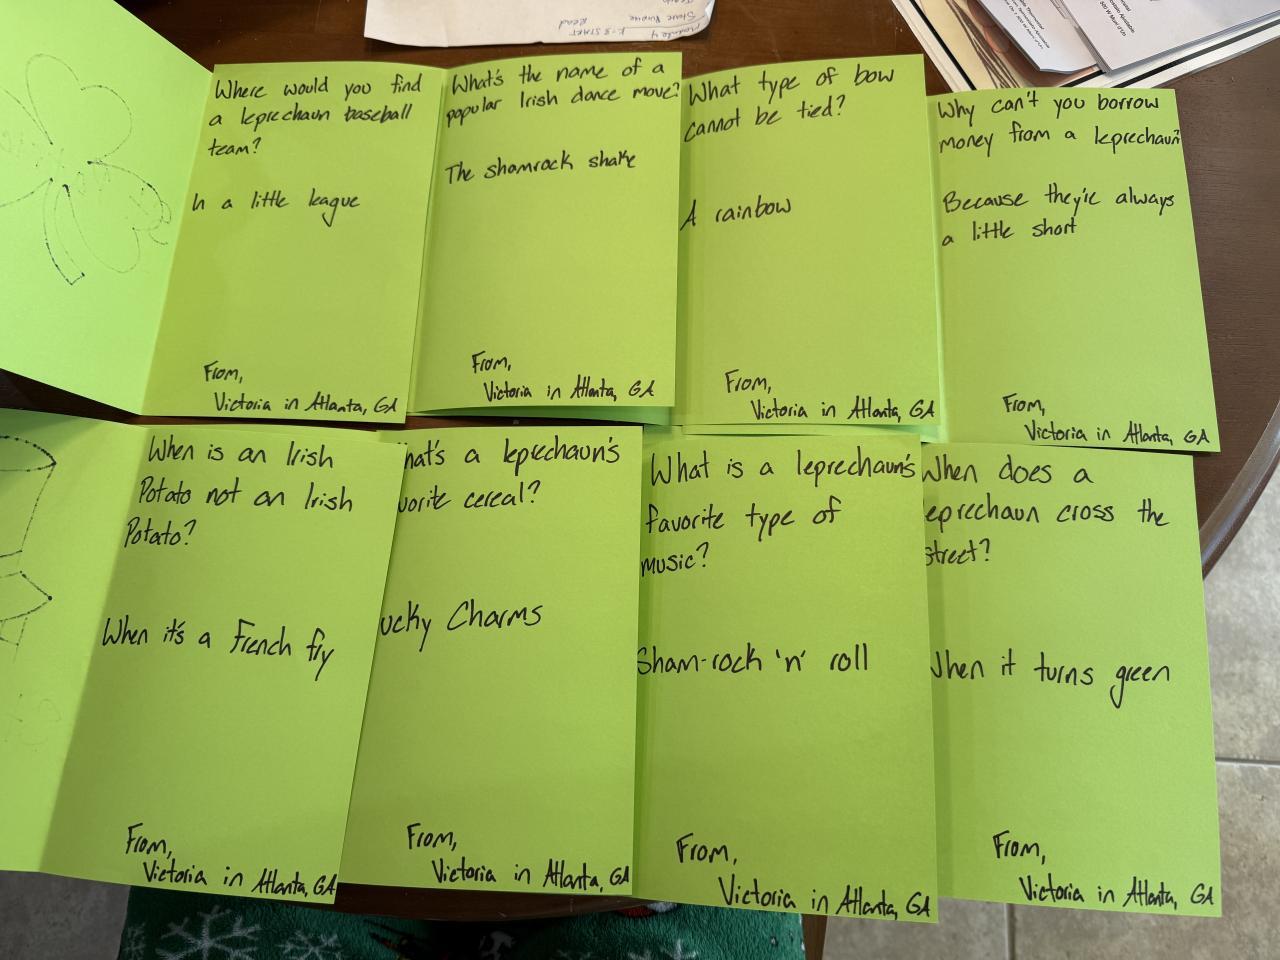 Where would you find
a leprechaun baseball
team?
In a little league
From,
Victoria in Atlanta, GA
What's the name of a
popular Irish dance move?
The shamrock shake
From,
Victoria in Atlanta, GA
What type of bow
cannot be tied?
A rainbow
From,
Victoria in Atlanta, GA
Why can't you borrow
money from a leprechaun?
Because they're always
a little short
From,
Victoria in Atlanta, GA
When is an Irish
Potato not an Irish
Potato?
When it's a French fry
From,
Victoria in Atlanta, GA
hat's a leprechaun's
vorite cereal?
ucky Charms
From,
Victoria in Atlanta, GA
What is a leprechaun's
favorite type of
music?
Sham-rock 'n' roll
From,
Victoria in Atlanta, GA
When does a
eprechaun cross the
street?
When it turns green
From,
Victoria in Atlanta, GA